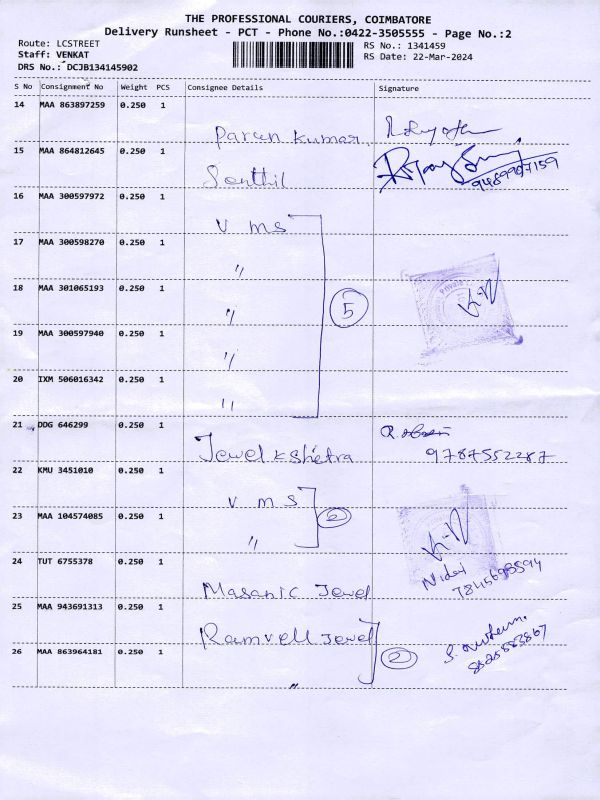 THE PROFESSIONAL COURIERS, COIMBATORE
Delivery Runsheet - PCT - Phone No.:0422-3505555 - Page No.:2
Route: LCSTREET
Staff: VENKAT
DRS No.: DCJB134145902
RS No.: 1341459
RS Date: 22-Mar-2024
S No Consignment No Weight PCS Consignee Details Signature
14 MAA 863897259 0.250 1
Parun Kumar
15 MAA 864812645 0.250 1
Senthil
9489907159
16 MAA 300597972 0.250 1
V M S
17 MAA 300598270 0.250 1
"
18 MAA 301065193 0.250 1
"
5
19 MAA 300597940 0.250 1
"
20 IXM 506016342 0.250 1
"
21 DDG 646299 0.250 1
Jewel Kshetra
9787552287
22 KMU 3451010 0.250 1
V M S
23 MAA 104574085 0.250 1
"
2
24 TUT 6755378 0.250 1
Masanic Jewel
25 MAA 943691313 0.250 1
Ramvell Jewel
26 MAA 863964181 0.250 1
"
2